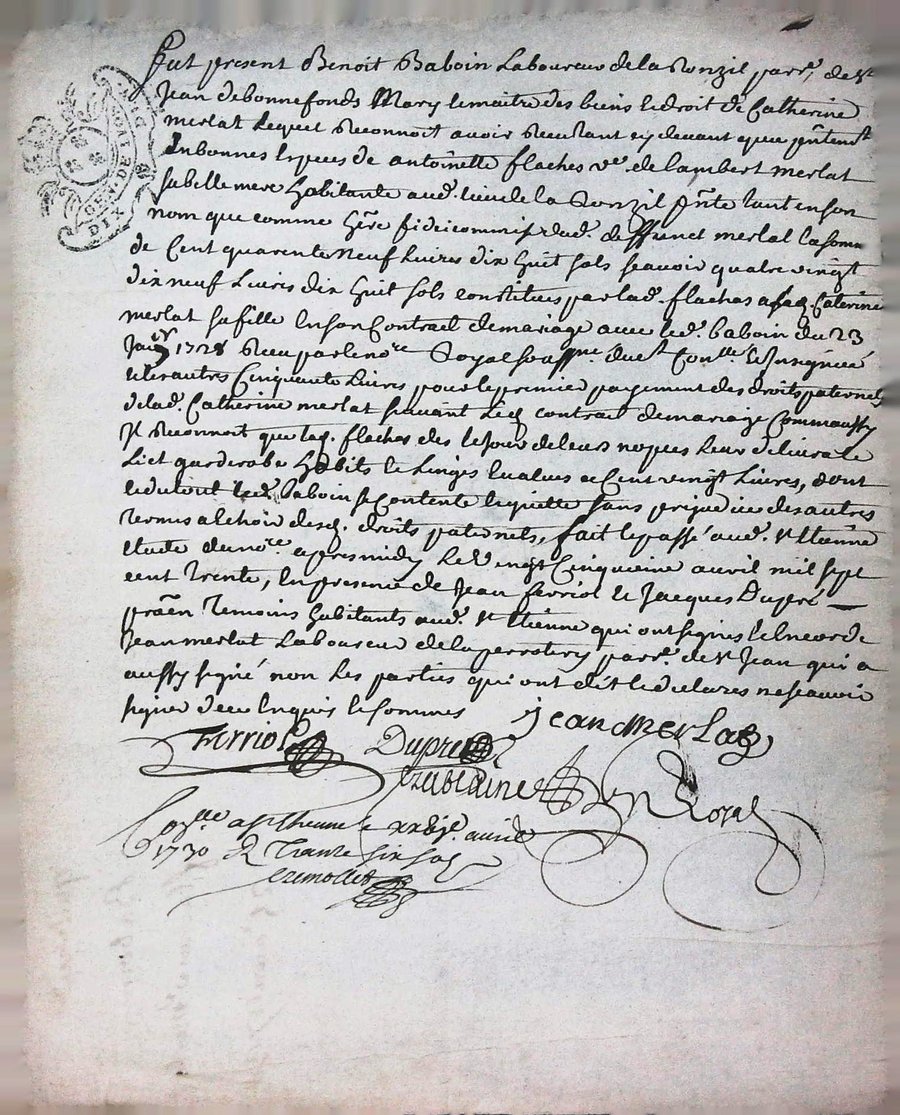 Fut present Benoit Baboin Laboureur de la Ronzil parr. de St
Jean de bonnefonds Mary le maitre des biens le droit de Catherine
merlat Lequel Reconnoit avoir Receu tant cy devant que pntemt
En bonnes Especes de antoinette flaches ve. de lambert merlat
sa belle mere habitante aud. lieu de la Ronzil pnte tant en son
nom que comme here fideicommis dud. deffunct merlat la somme
de Cent quarente neuf Livres dix huit sols scavoir quatre vingt
dix neuf Livres dix huit sols constitues par lad. flaches a sad. Caterine
merlat sa fille En son Contract de mariage avec led. baboin du 23
1728 Receu par le nore Royal soussne
et les autres Cinquante Livres pour le premier payement des droits paternels
de lad. Catherine merlat suivant led contrat de mariage Comm'aussy
Il Reconnoit que lad. flaches des le jour de leurs nopces leur delivra le
Lict garderobe habits le Linges Evalues a Cent vingt Livres, dont
le du tout led. baboin se Contente le quitte sans prejudice des autres
termes a lechoir desd. droits paternels, fait le passé aud. St Etienne
Etude du nore. apres midy le vingt Cinquieme avril mil sept
cent trente, En presence de Jean ferriol et Jacques Dupré
pratien temoins habitants aud. St Etienne qui ont signes le
Jean merlat Laboureur de la parr. de St Jean qui a
aussy signé non Les parties qui ont dét le declares ne scavoir
signer de ce Enquis le sommes
Jean merlat
Ferriol
Dupré
Royal
Conlle a St Etienne le avril
1730 R Trante six sols
GEN. DE
DIX